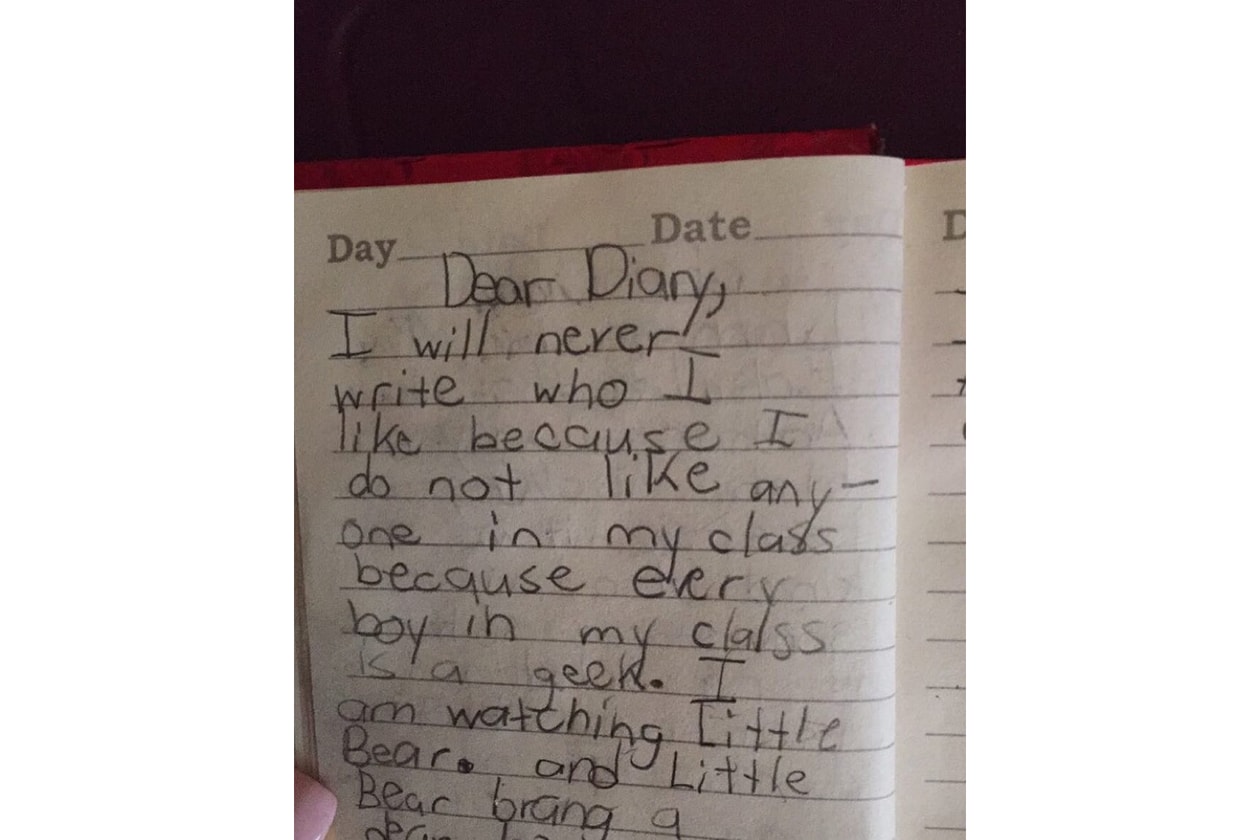 Day Date D
Dear Diary,
I will never
write who I
like because I
do not like any-
one in my class
because every
boy in my class
is a geek. I
am watching Little
Bear. and Little
Bear brang a